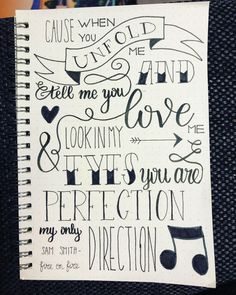 CAUSE WHEN
YOU UNFOLD ME
AND
tell me you love me
LOOK IN MY
& EYES you are
PERFECTION
my only
DIRECTION
SAM SMITH -
fire on fire